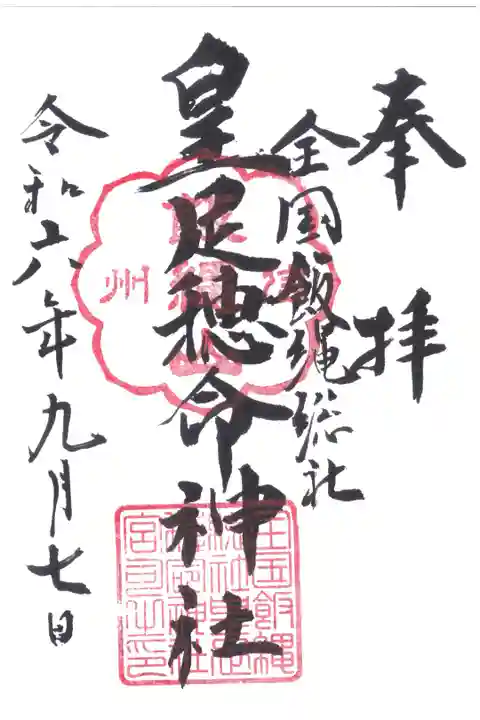 奉拝
全国飯縄総社
皇足穂命神社
令和六年九月七日
州